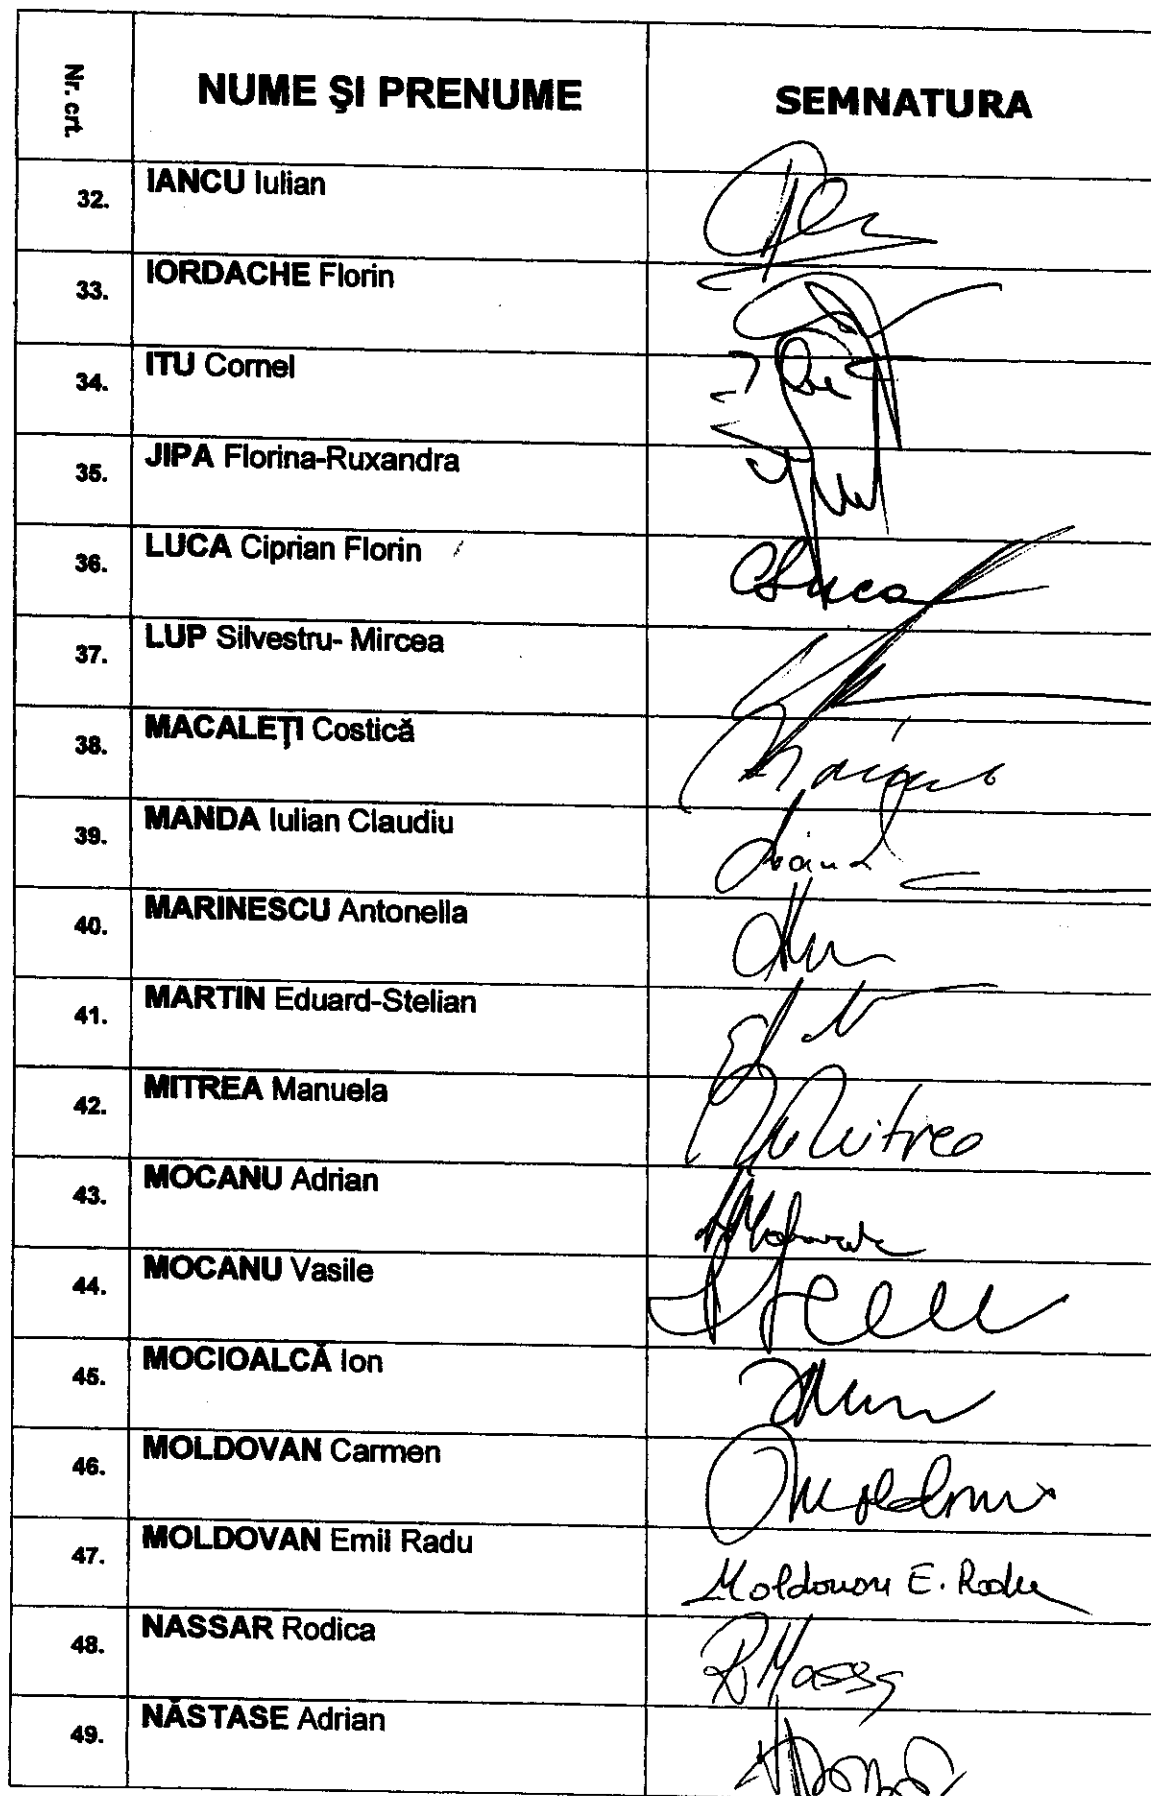 Nr. crt. NUME ŞI PRENUME SEMNATURA
32. IANCU Iulian
33. IORDACHE Florin
34. ITU Cornel
35. JIPA Florina-Ruxandra
36. LUCA Ciprian Florin CLuca
37. LUP Silvestru- Mircea
38. MACALEŢI Costică
39. MANDA Iulian Claudiu
40. MARINESCU Antonella
41. MARTIN Eduard-Stelian
42. MITREA Manuela Mitrea
43. MOCANU Adrian
44. MOCANU Vasile
45. MOCIOALCĂ Ion
46. MOLDOVAN Carmen
47. MOLDOVAN Emil Radu Moldovan E. Radu
48. NASSAR Rodica
49. NĂSTASE Adrian